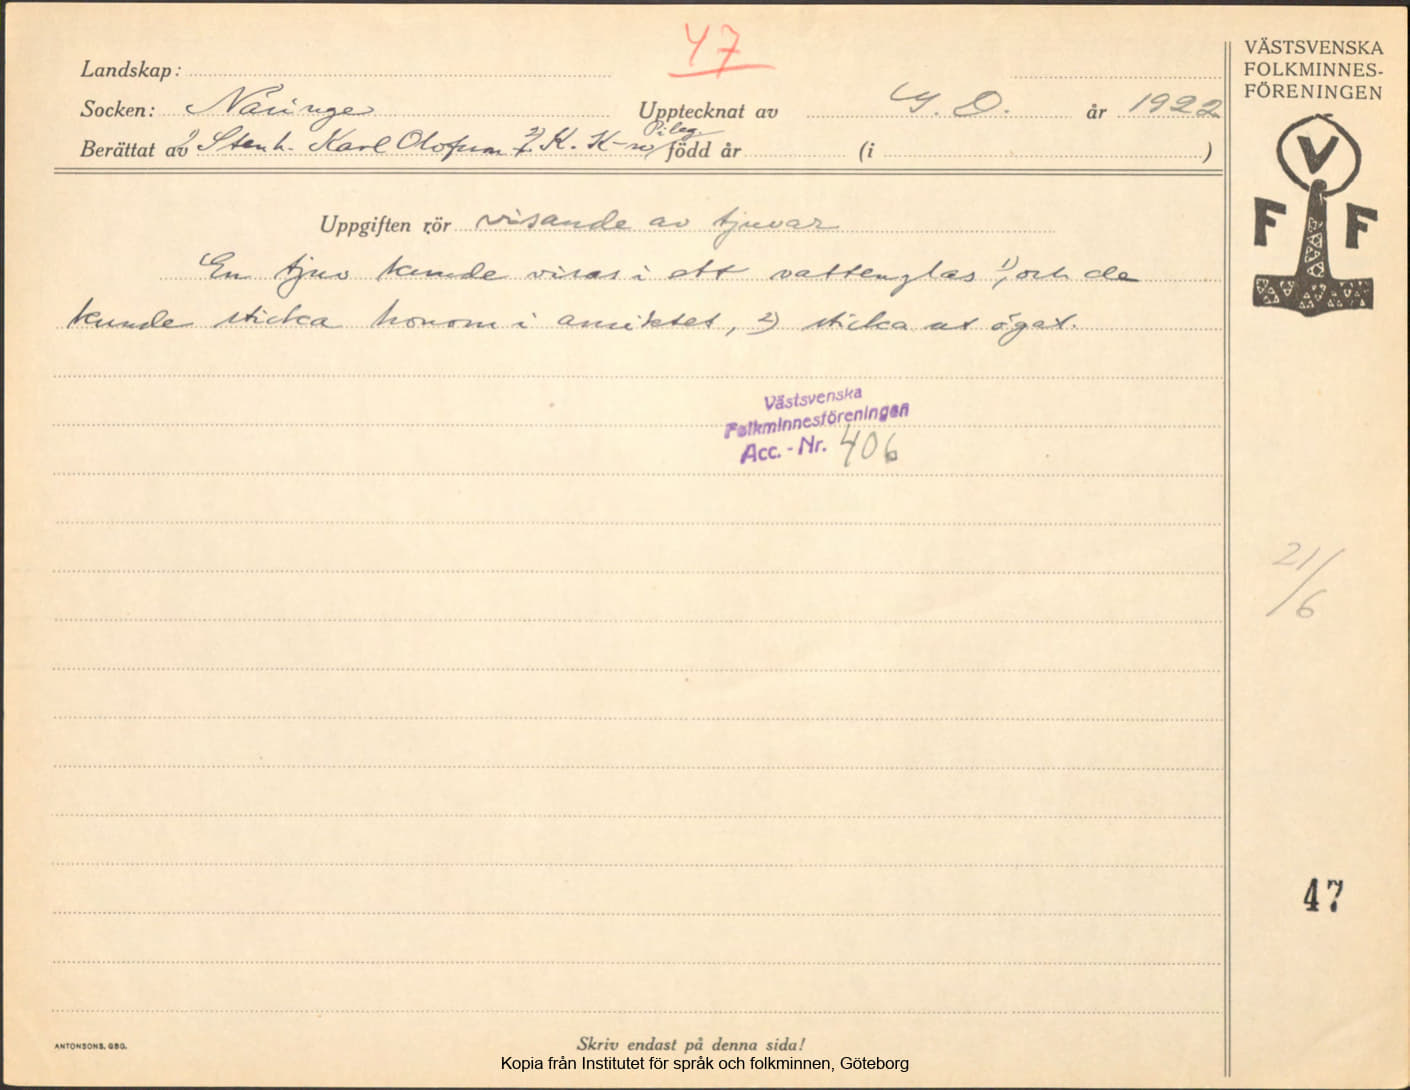 47
VÄSTSVENSKA
FOLKMINNES-
FÖRENINGEN
Landskap:
Socken: Näsinge Upptecknat av D. år 1922
Pileg
Berättat av 1) Stenh. Karl Olofsson 2) K. K-no född år (i )
V
F F
Uppgiften rör visande av tjuvar
En tjuv kunde visas i ett vattenglas 1), och de
kunde sticka honom i ansiktet, 2) sticka ut ögat.
Västsvenska
Folkminnesföreningen
Acc. - Nr. 406
21/6
47
ANTONSONS, GBG.
Skriv endast på denna sida!
Kopia från Institutet för språk och folkminnen, Göteborg